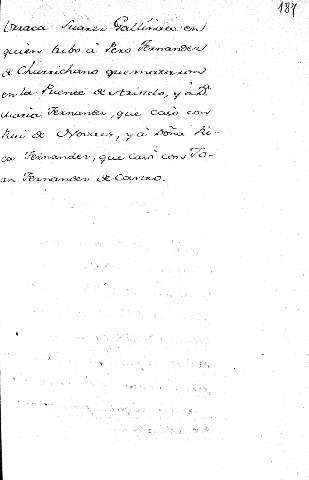 187
Urraca Suarez Gallinato en
quien hubo à Pero Fernandez
de Churrichano que mataron
en la Puente de Arindo, y à D.ª
Maria Fernandez, que casò con
Rui de Novaes, y à doña Si-
ca Fernandez, que casò con Jo-
an Fernandez de Castro.